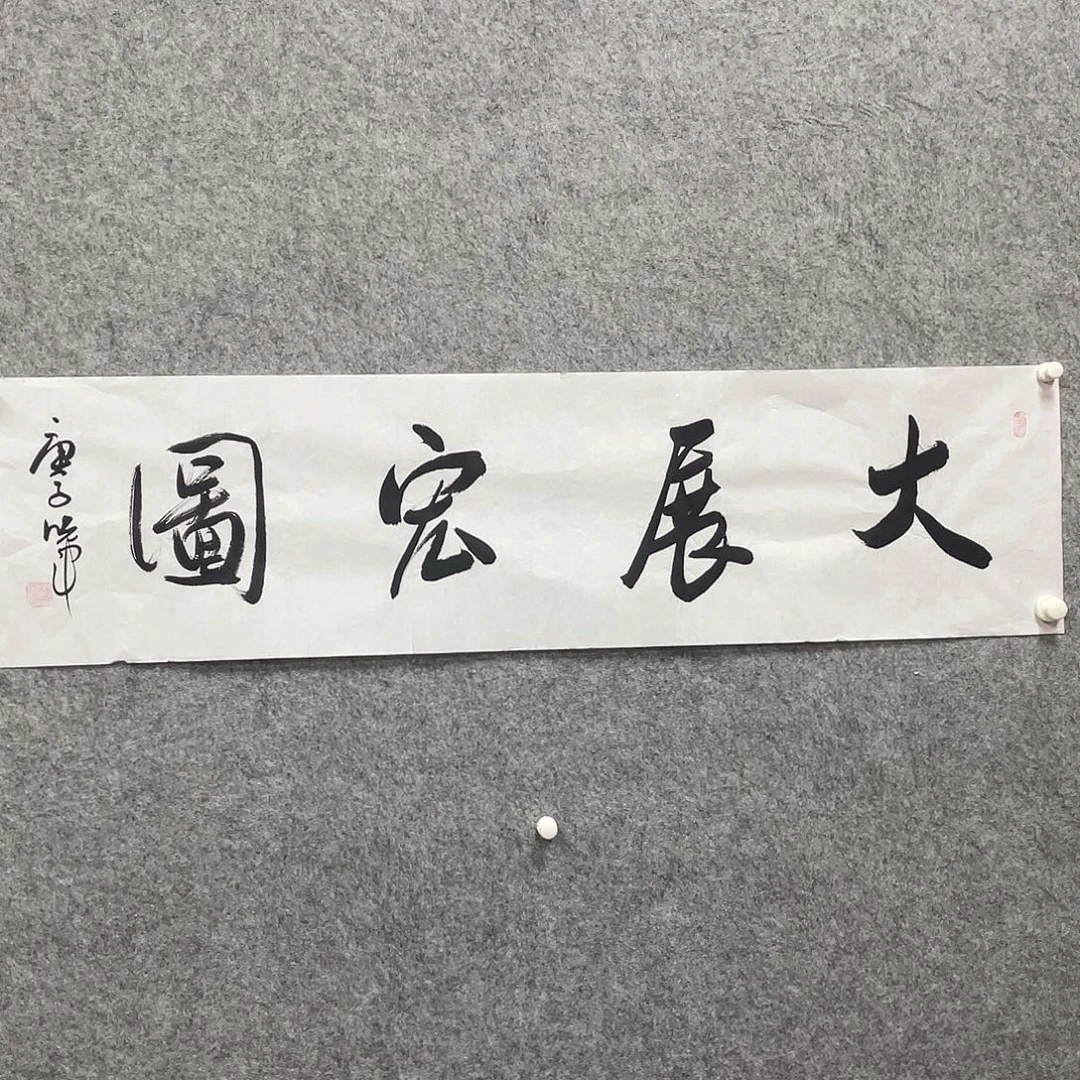 大展宏圖
庚子